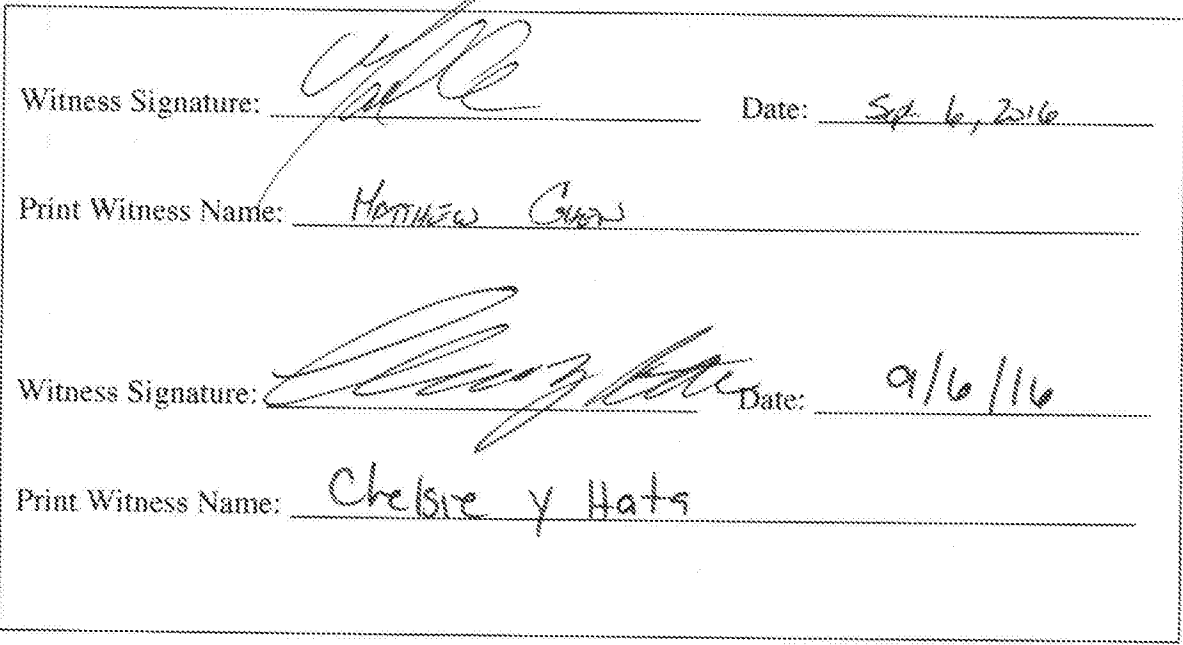 Witness Signature: Date: Sep 6, 2016
Print Witness Name: Matthew
Witness Signature: Date: 9/6/16
Print Witness Name: Chelsie Y Hata